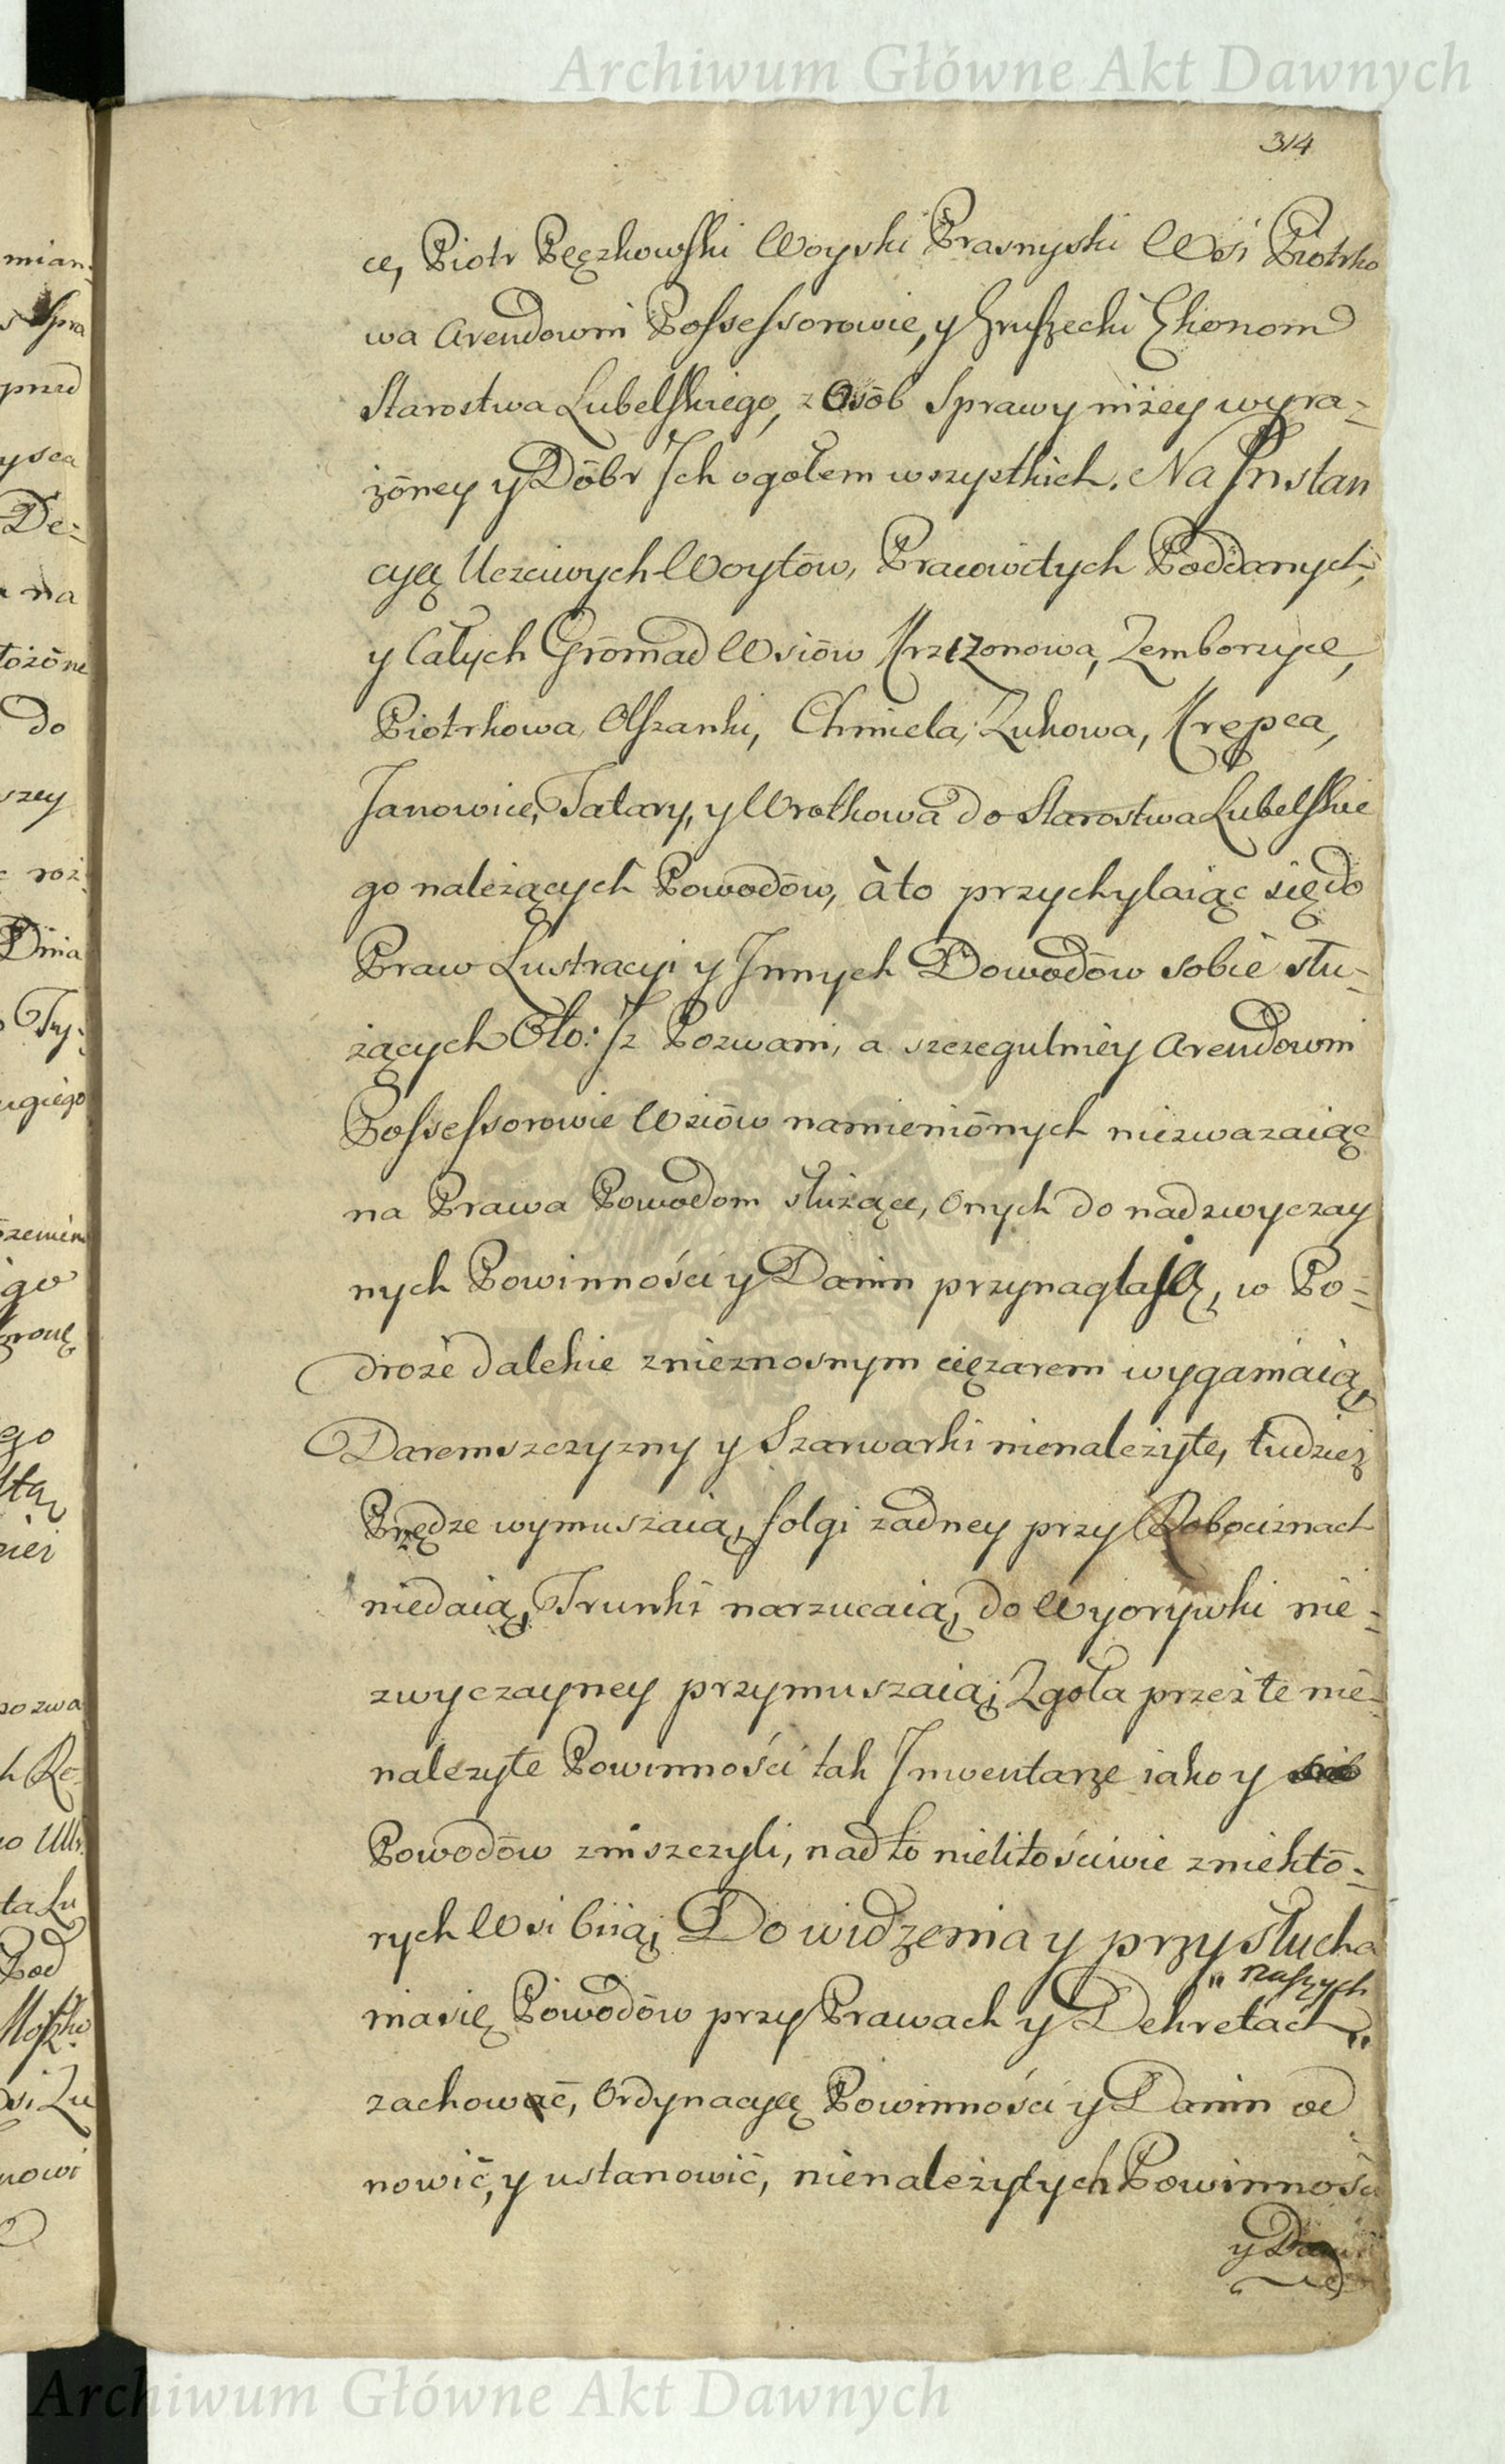 Archiwum Główne Akt Dawnych
314
ce, Piotr Pęczkowski Woyski Prasnyski Wsi Piotrko
wa Arendowni Possessorowie, y Gruszecki Ekonom
Starostwa Lubelskiego, z Osōb Sprawy niżey wyra-
żōney y Dōbr Ich ogołem wszystkich. Na Instan
cyą Uczciwych Woytōw, Pracowitych Poddanych,
y Całych Grōmad Wsiōw Krzczonowa, Zemborzyce,
Piotrkowa, Olszanki, Chmiela, Zukowa, Krępca,
Janowice, Tatary, y Wrotkowa do Starostwa Lubelskie
go należących Powodōw, à to przychylaiąc się do
Praw Lustracyi y Innych Dowodōw sobie słu-
żących Oto: Iz Pozwani, a szczegulniey Arendowni
Possessorowie Wsiōw namieniōnych niezwazaiąc
na Prawa Powodom służące, Onych do nadzwyczay
nych Powinności y Danin przynaglaią, w Po-
droże dalekie znieznosnym ciężarem wyganiaią,
Daremszczyzny y Szarwarki nienależyte, tudzież
Przędze wymuszaią, folgi żadney przy Robociznach
niedaią, Trunki narzucaią, do Wyorywki nie-
zwyczayney przymuszaią; Zgoła przez te nie-
należyte Powinności tak Inwentarze iako y
Powodōw zniszczyli, nad to nielitościwie zniektō-
rych Wsi biią; Do widzenia y przysłucha
" naszych
nia się Powodōw przy Prawach y Dekretach "
zachować, Ordynacyą Powinności y Danin od
nowić, y ustanowić, nienależytych Powinności
y Danin
Archiwum Główne Akt Dawnych